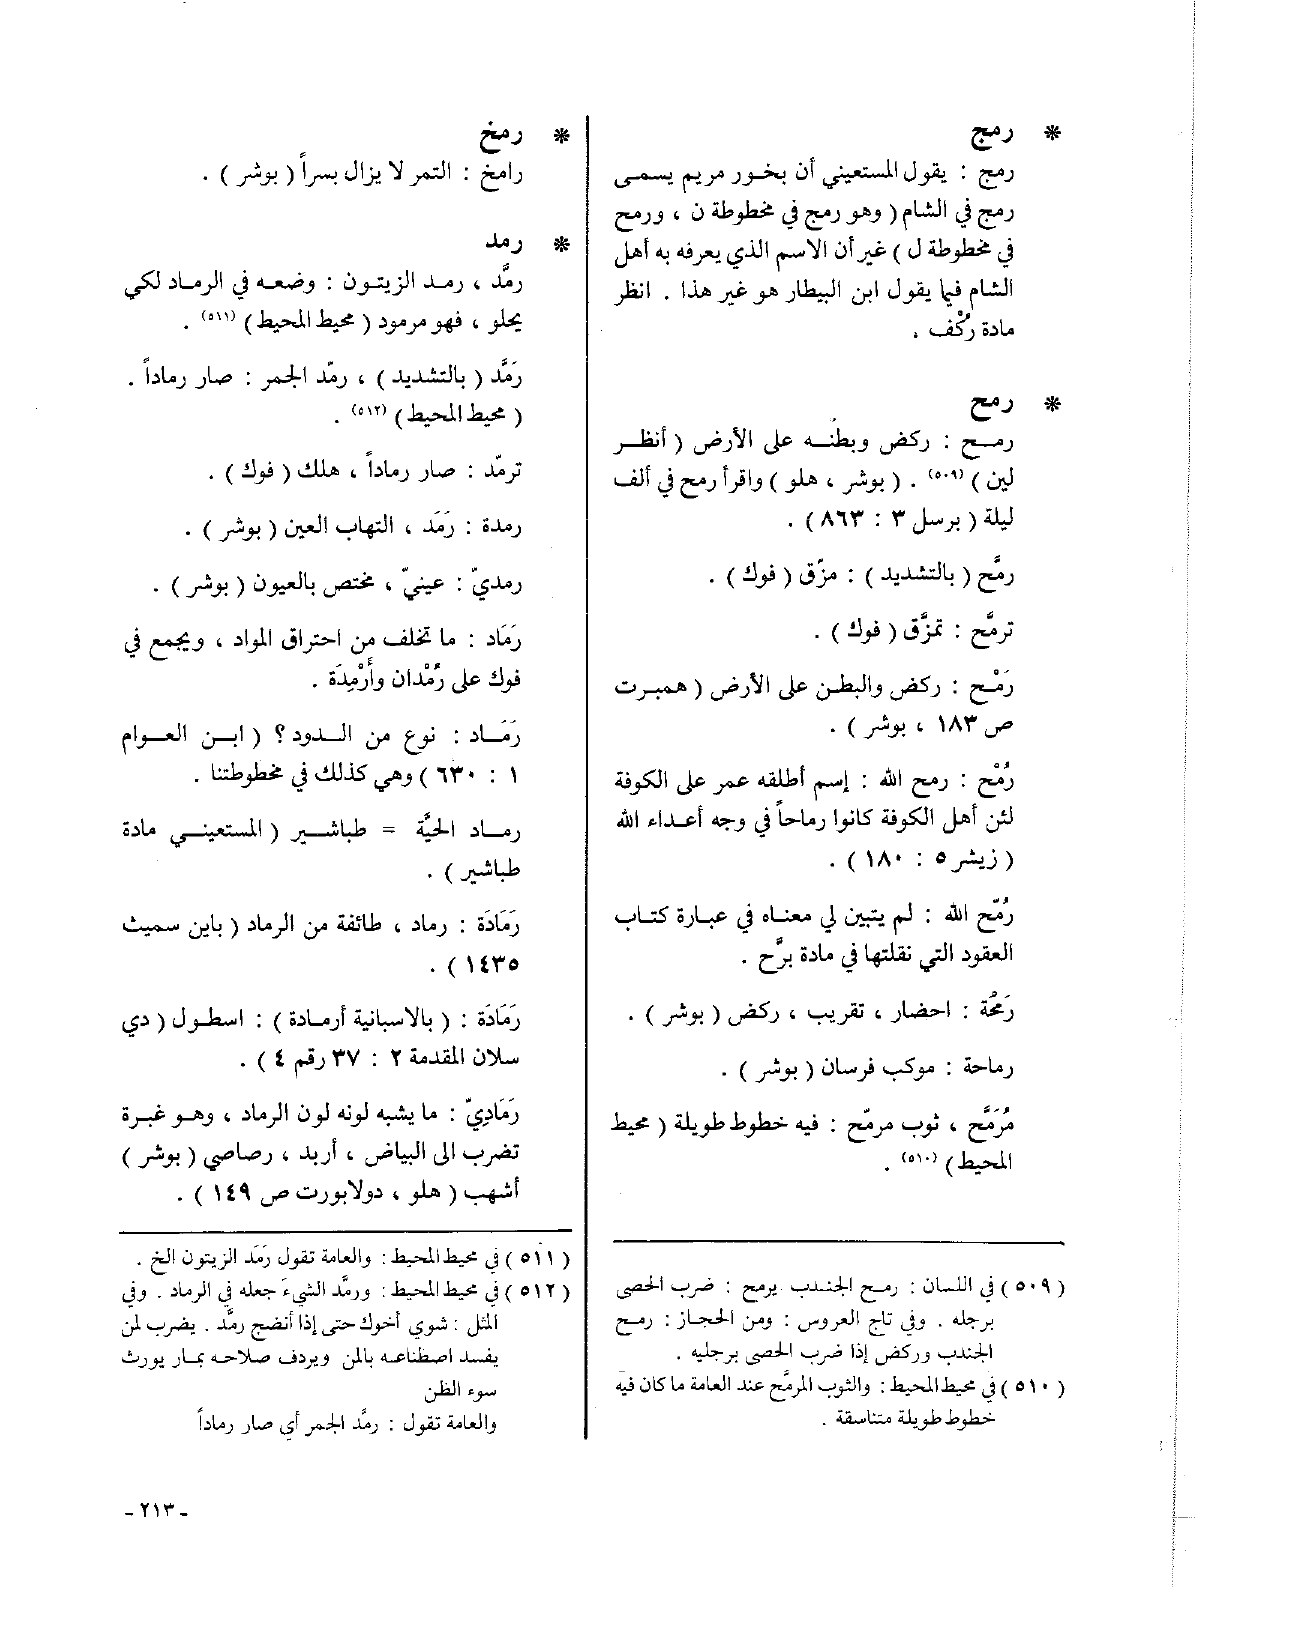 * رمج
رمج : يقول المستعيني أن بخور مريم يسمى
رمج في الشام ( وهو رمج في مخطوطة ن ، ورمح
في مخطوطة ل ) غير أن الاسم الذي يعرفه به أهل
الشام فيما يقول ابن البيطار هو غير هذا . انظر
مادة رَكْف .
* رمح
رمح : ركض وبطنه على الأرض ( أنظر
لين ) (٥٠٩) . ( بوشر ، هلو ) واقرأ رمح في ألف
ليلة ( برسل ٣ : ٨٦٣ ) .
رمَّح ( بالتشديد ) : مزّق ( فوك ) .
ترمَّح : تمزَّق ( فوك ) .
رَمْح : ركض والبطن على الأرض ( همبرت
ص ١٨٣ ، بوشر ) .
رُمْح : رمح الله : إسم أطلقه عمر على الكوفة
لئن أهل الكوفة كانوا رماحاً في وجه أعداء الله
( زيشر ٥ : ١٨٠ ) .
رُمّح الله : لم يتبين لي معناه في عبارة كتاب
العقود التي نقلتها في مادة برَّح .
رَمْحَة : احضار ، تقريب ، ركض ( بوشر ) .
رماحة : موكب فرسان ( بوشر ) .
مُرَمَّح ، ثوب مرمّح : فيه خطوط طويلة ( محيط
المحيط ) (٥١٠) .
( ٥٠٩ ) في اللسان : رمح الجندب يرمح : ضرب الحصى
برجله . وفي تاج العروس : ومن الحجاز : رمح
الجندب وركض إذا ضرب الحصى برجليه .
( ٥١٠ ) في محيط المحيط : والثوب المرمَّح عند العامة ما كان فيه
خطوط طويلة متناسقة .
* رمخ
رامخ : التمر لا يزال بسراً ( بوشر ) .
* رمد
رمَّد ، رمد الزيتون : وضعه في الرماد لكي
يحلو ، فهو مرمود ( محيط المحيط ) (٥١١) .
رَمَّد ( بالتشديد ) ، رمّد الجمر : صار رماداً .
( محيط المحيط ) (٥١٢) .
ترمّد : صار رماداً ، هلك ( فوك ) .
رمدة : رَمَد ، التهاب العين ( بوشر ) .
رمديّ : عينيّ ، مختص بالعيون ( بوشر ) .
رَمَاد : ما تخلف من احتراق المواد ، ويجمع في
فوك على رُمْدان وأَرْمِدَة .
رَمَاد : نوع من الدود ؟ ( ابن العوام
١ : ٦٣٠ ) وهي كذلك في مخطوطتنا .
رماد الحيَّة = طباشير ( المستعيني مادة
طباشير ) .
رَمَادَة : رماد ، طائفة من الرماد ( باين سميث
١٤٣٥ ) .
رَمَادَة : ( بالاسبانية أرمادة ) : اسطول ( دي
سلان المقدمة ٢ : ٣٧ رقم ٤ ) .
رَمَادِيّ : ما يشبه لونه لون الرماد ، وهو غبرة
تضرب الى البياض ، أربد ، رصاصي ( بوشر )
أشهب ( هلو ، دولابورت ص ١٤٩ ) .
( ٥١١ ) في محيط المحيط : والعامة تقول رَمَد الزيتون الخ .
( ٥١٢ ) في محيط المحيط : ورمَّد الشيءَ جعله في الرماد . وفي
المثل : شوي أخوك حتى إذا أنضج رمَّد . يضرب لمن
يفسد اصطناعه بالمن ويردف صلاحه بما يورث
سوء الظن
والعامة تقول : رمَّد الجمر أي صار رماداً
- ٢١٣ -